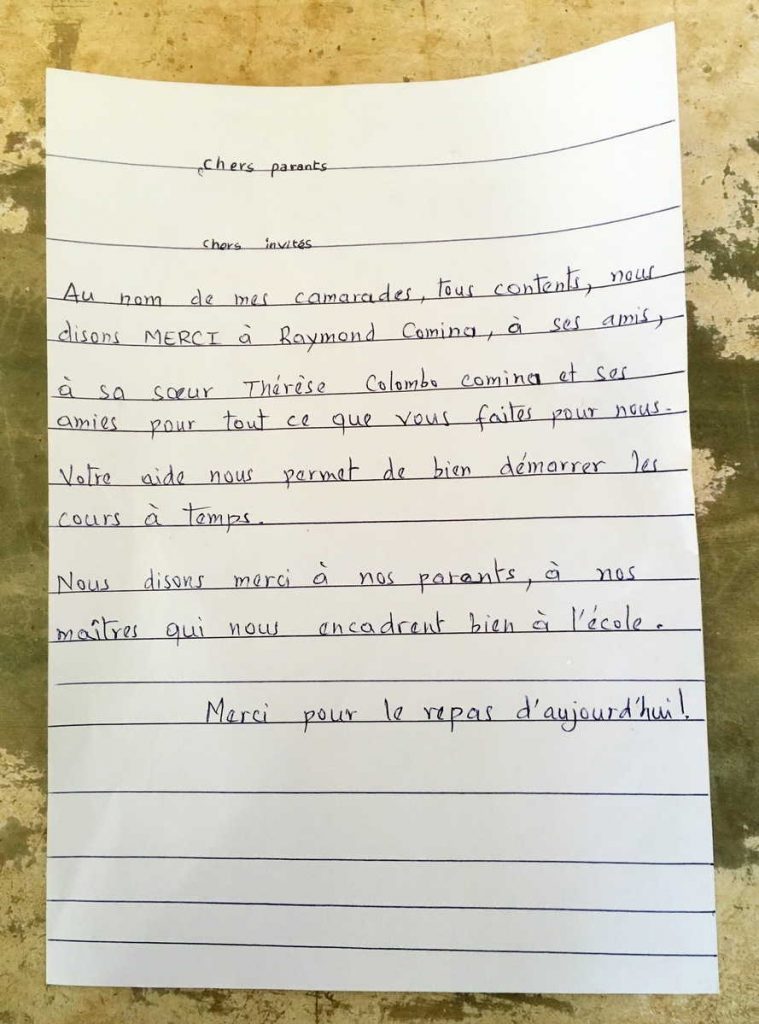 Chers parants
Chers invités
Au nom de mes camarades, tous contents, nous
disons MERCI à Raymond Comina, à ses amis,
à sa sœur Thérèse Colombo comina et ses
amies pour tout ce que vous faites pour nous.
Votre aide nous permet de bien démarrer les
cours à temps.
Nous disons merci à nos parants, à nos
maîtres qui nous encadrent bien à l'école.
Merci pour le repas d'aujourd'hui!